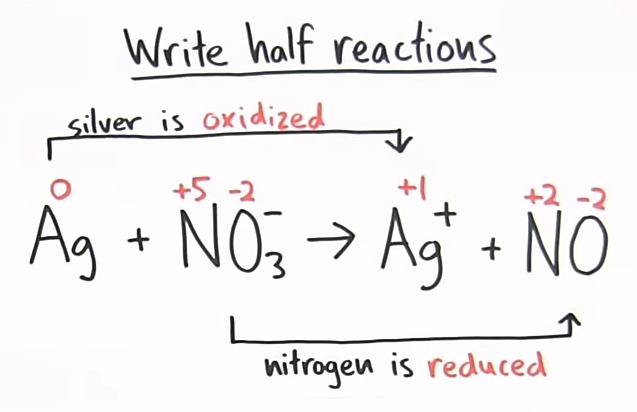 Write half reactions
silver is oxidized
0 +5 -2 +1 +2 -2
Ag + NO₃⁻ → Ag⁺ + NO
nitrogen is reduced